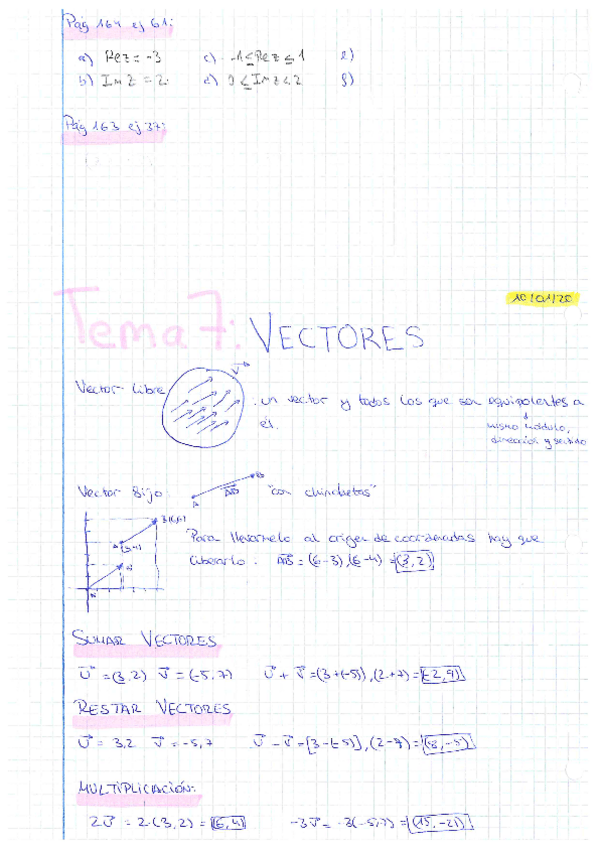 Pág 164 ej 61:
a) Re z = -3 c) -1 ≤ Re z ≤ 1 e)
b) Im z = 2 d) 0 ≤ Im z < 2 f)
Pág 163 ej 37:
10/01/20
Tema 7: VECTORES
Vector libre: un vector y todos los que son equipolentes a
él.
mismo módulo,
dirección y sentido
Vector fijo: A AB B "con chinchetas"
Para llevármelo al origen de coordenadas hay que
liberarlo: AB = (6-3),(6-4) = (3,2)
SUMAR VECTORES
U = (3,2) V = (-5,7) U + V = (3+(-5)),(2+7) = (-2,9)
RESTAR VECTORES
U = 3,2 V = -5,7 U - V = [3-(-5)],(2-7) = (8,-5)
MULTIPLICACIÓN:
2U = 2·(3,2) = (6,4) -3V = -3(-5,7) = (15,-21)